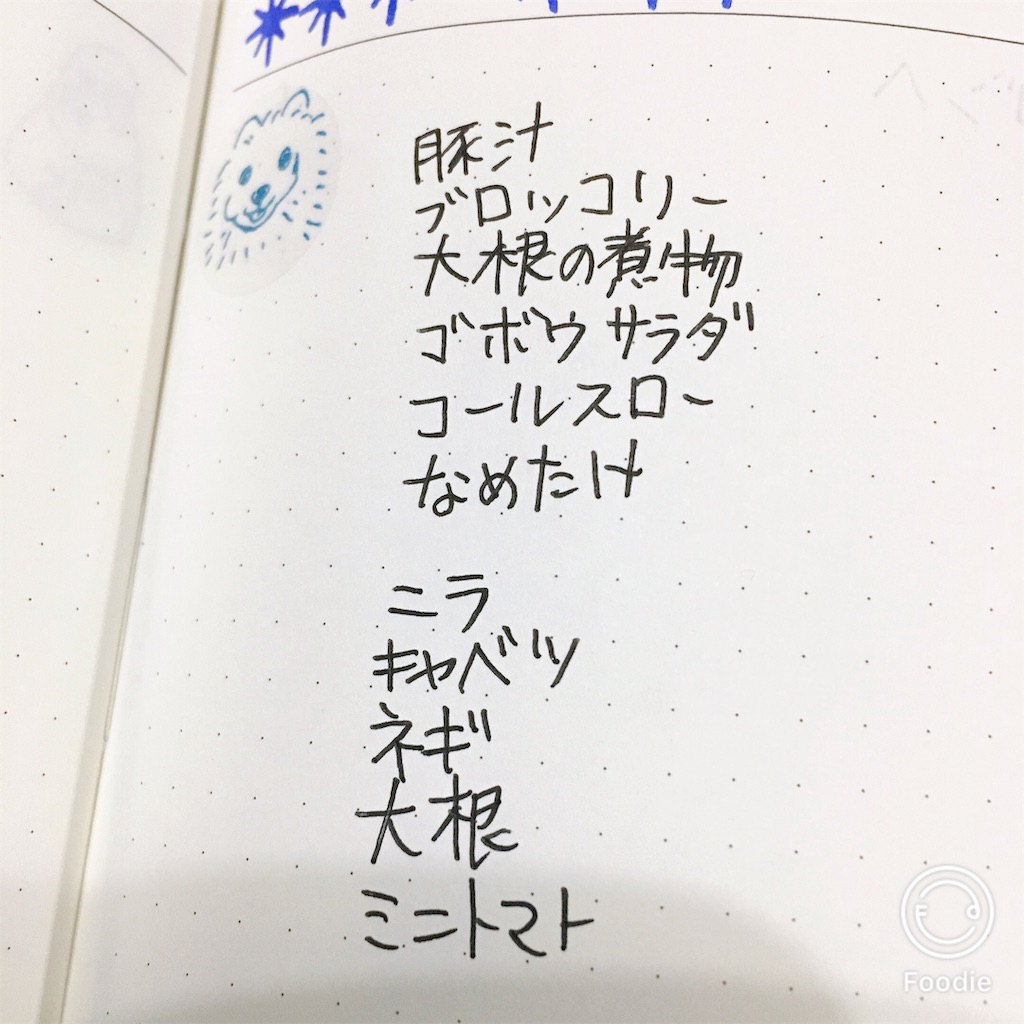 豚汁
ブロッコリー
大根の煮物
ゴボウサラダ
コールスロー
なめたけ
ニラ
キャベツ
ネギ
大根
ミニトマト
F d
Foodie